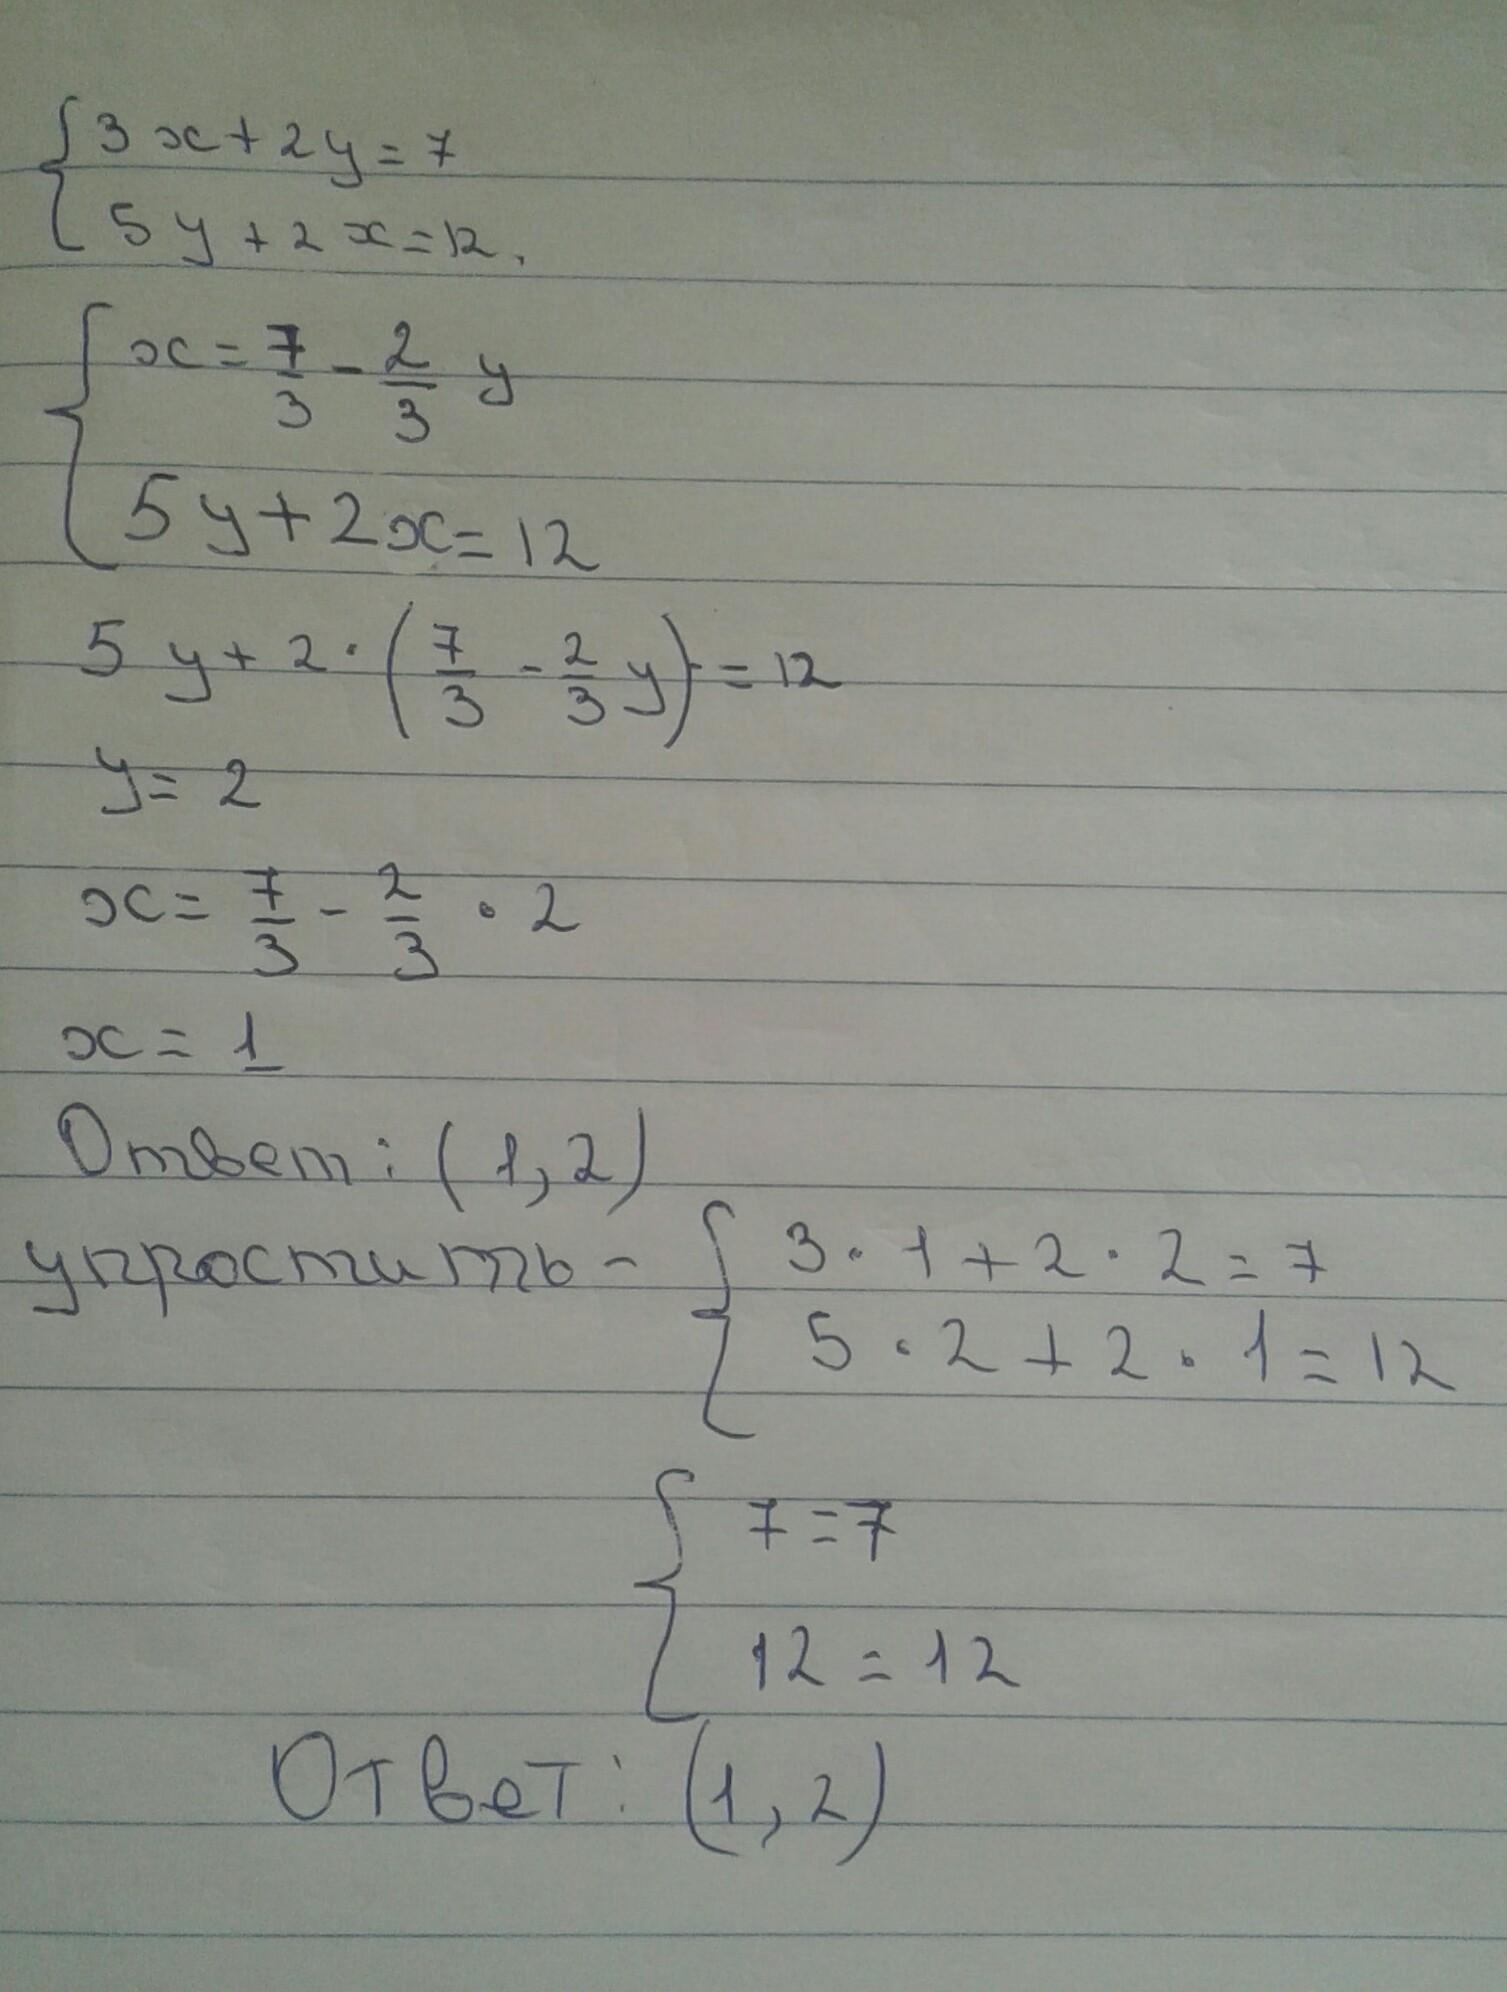 { 3x+2y=7
5y+2x=12.
{ x=7/3-2/3 y
5y+2x=12
5y+2·(7/3-2/3 y)=12
y=2
x=7/3-2/3·2
x=1
Ответ: (1,2)
упростить - { 3·1+2·2=7
5·2+2·1=12
{ 7=7
12=12
Ответ: (1,2)